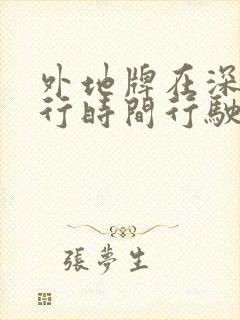 外地牌在深
行時間行駛
張夢生